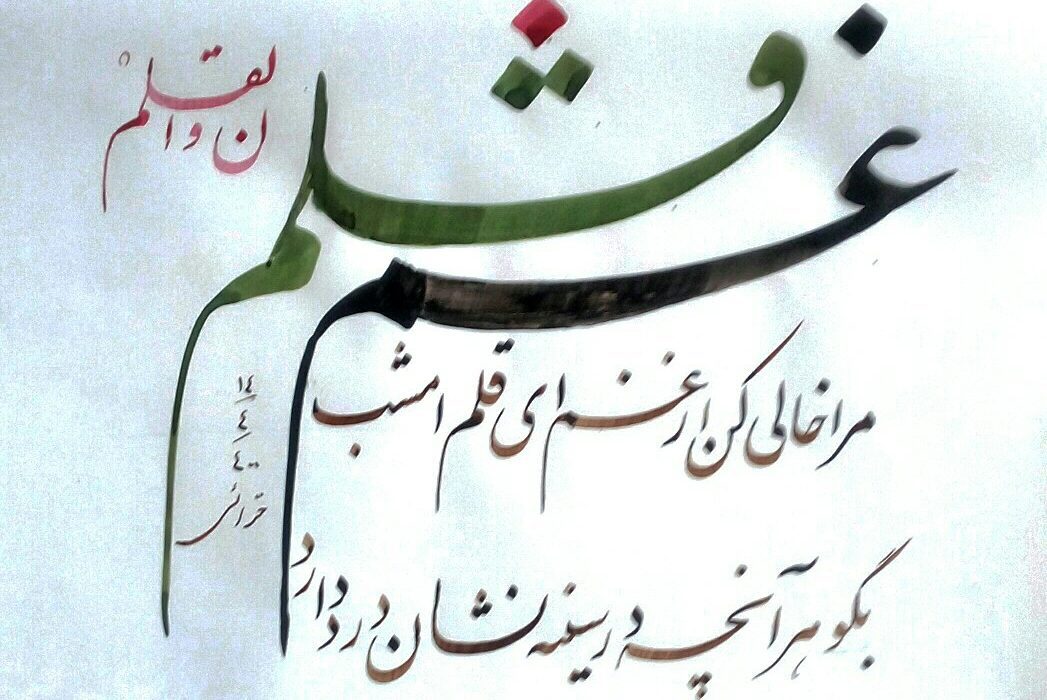 ن والقلم
غم قلم
مرا خالی کن از غم ای قلم امشب
بگو هر آنچه در سینه نشان درد دارد
١٤
٤
٤٠٠
خزائی